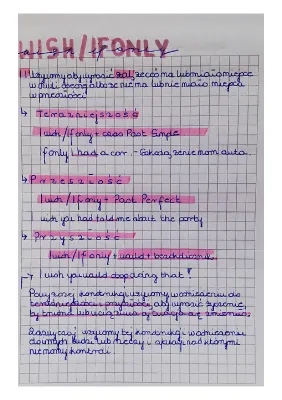 WISH/IFONLY
wish if only
!!! Używamy aby wyrazić żal, że coś ma lub miało miejsce
w chwili obecnej albo że nie ma lub nie miało miejsca
w przeszłości
↳ Teraźniejszość
I wish / If only + czas Past Simple
If only I had a car. - Szkoda, że nie mam auta.
↳ Przeszłość
I wish / If only + Past Perfect
I wish you had told me about the party
↳ Przyszłość
I wish / If only + would + bezokolicznik
→ I wish you would stop doing that!
Powyższej konstrukcji używamy w odniesieniu do
teraźniejszości i przyszłości, aby wyrazić życzenie,
by się zmieniło.
Zazwyczaj używamy tej konstrukcji w odniesieniu
do innych ludzi lub rzeczy i sytuacji nad którymi
nie mamy kontroli